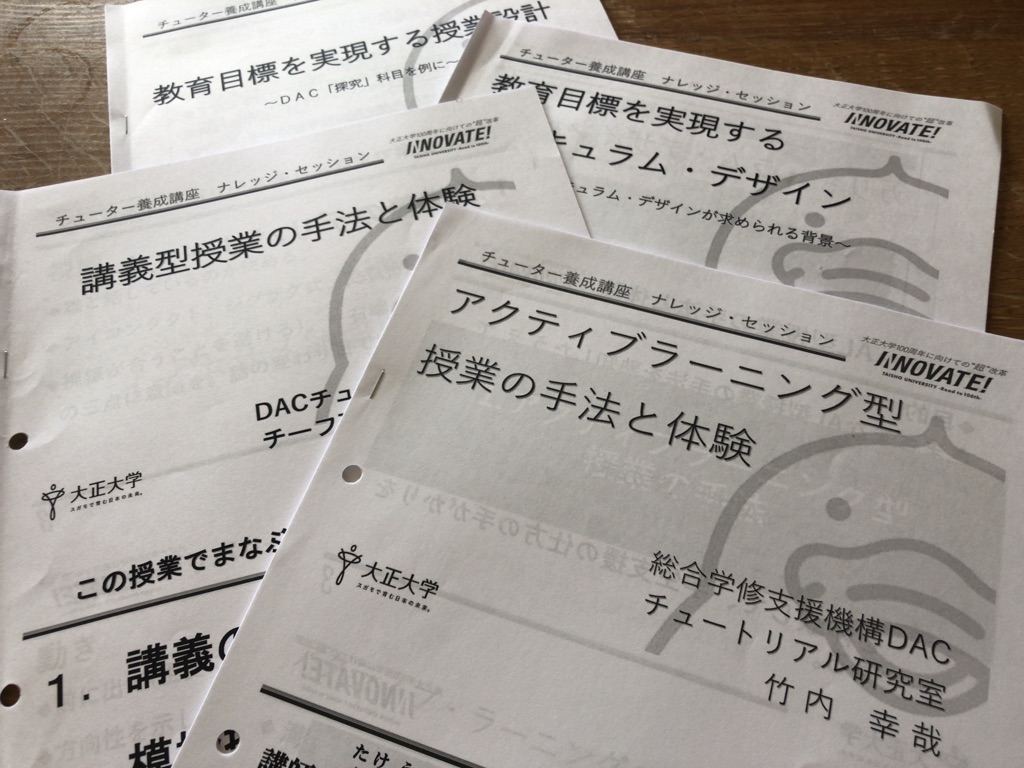 チューター養成講座
教育目標を実現する授業設計
～DAC「探究」科目を例に～
チューター養成講座 ナレッジ・セッション
大正大学100周年に向けての"超"改革
INNOVATE!
TAISHO UNIVERSITY -Road to 100th-
教育目標を実現する
キュラム・デザイン
キュラム・デザインが求められる背景～
チューター養成講座 ナレッジ・セッション
大正大学100周年に向けての"超"改革
INNOVATE!
TAISHO UNIVERSITY -Road to 100th-
講義型授業の手法と体験
DACチュ
チーフ
大正大学
スガモで育む日本の未来。
この授業でまなぶ
1. 講義の
模
チューター養成講座 ナレッジ・セッション
大正大学100周年に向けての"超"改革
INNOVATE!
TAISHO UNIVERSITY -Road to 100th-
アクティブラーニング型
授業の手法と体験
総合学修支援機構DAC
チュートリアル研究室
竹内 幸哉
大正大学
スガモで育む日本の未来。
たけう
講師